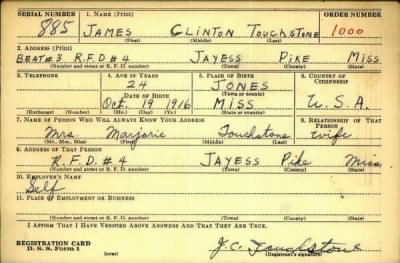 SERIAL NUMBER 1. NAME (Print) ORDER NUMBER
885 JAMES CLINTON TOUCHSTONE 1000
(First) (Middle) (Last)
2. ADDRESS (Print)
BEAT #3 R.F.D #4 JAYESS PIKE MISS
(Number and street or R. F. D. number) (Town) (County) (State)
3. TELEPHONE 4. AGE IN YEARS 5. PLACE OF BIRTH 6. COUNTRY OF CITIZENSHIP
24 JONES
DATE OF BIRTH (Town or county)
Oct. 19 1916 MISS U.S.A.
(Exchange) (Number) (Mo.) (Day) (Yr.) (State or country)
7. NAME OF PERSON WHO WILL ALWAYS KNOW YOUR ADDRESS 8. RELATIONSHIP OF THAT PERSON
Mrs. Marjorie Touchstone Wife
(Mr., Mrs., Miss) (First) (Middle) (Last)
9. ADDRESS OF THAT PERSON
R.F.D. #4 JAYESS Pike Miss.
(Number and street or R. F. D. number) (Town) (County) (State)
10. EMPLOYER'S NAME
Self
11. PLACE OF EMPLOYMENT OR BUSINESS
(Number and street or R. F. D. number) (Town) (County) (State)
I AFFIRM THAT I HAVE VERIFIED ABOVE ANSWERS AND THAT THEY ARE TRUE.
REGISTRATION CARD J.C. Touchstone
D. S. S. Form 1 (over) (Registrant's signature)